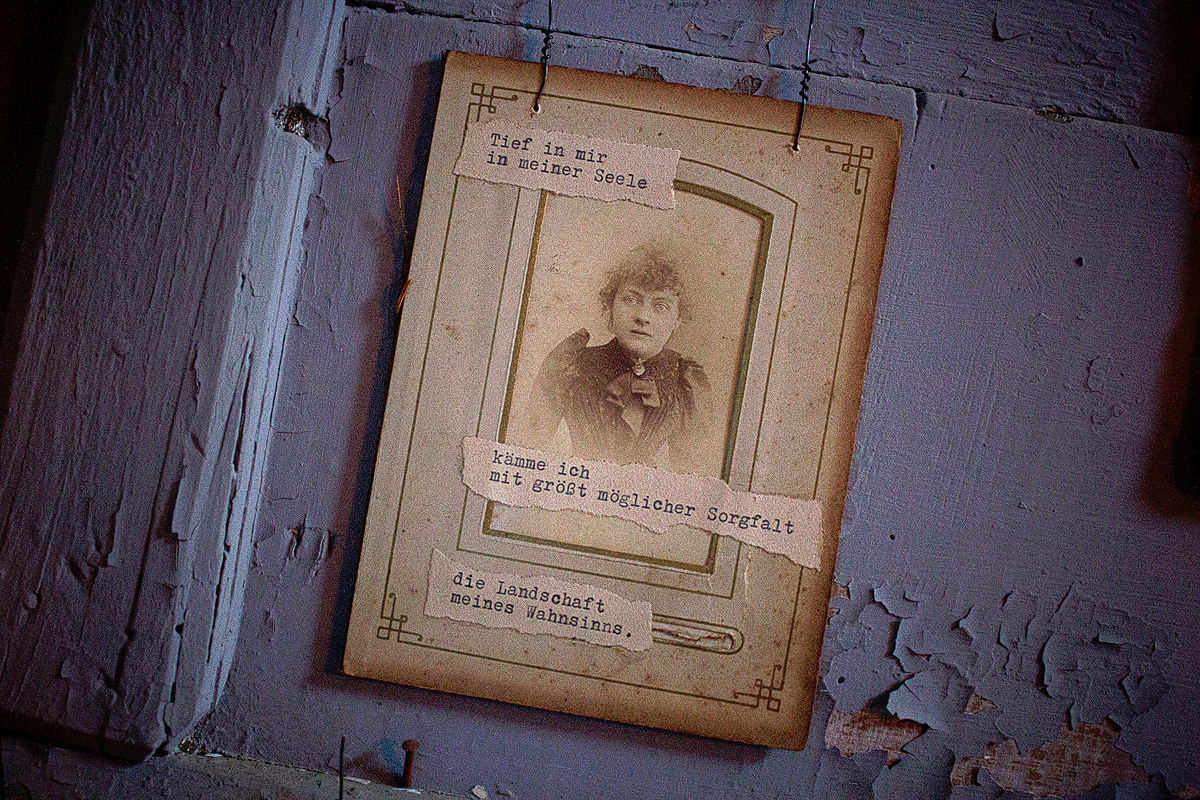 Tief in mir
in meiner Seele
kämme ich
mit größt möglicher Sorgfalt
die Landschaft
meines Wahnsinns.